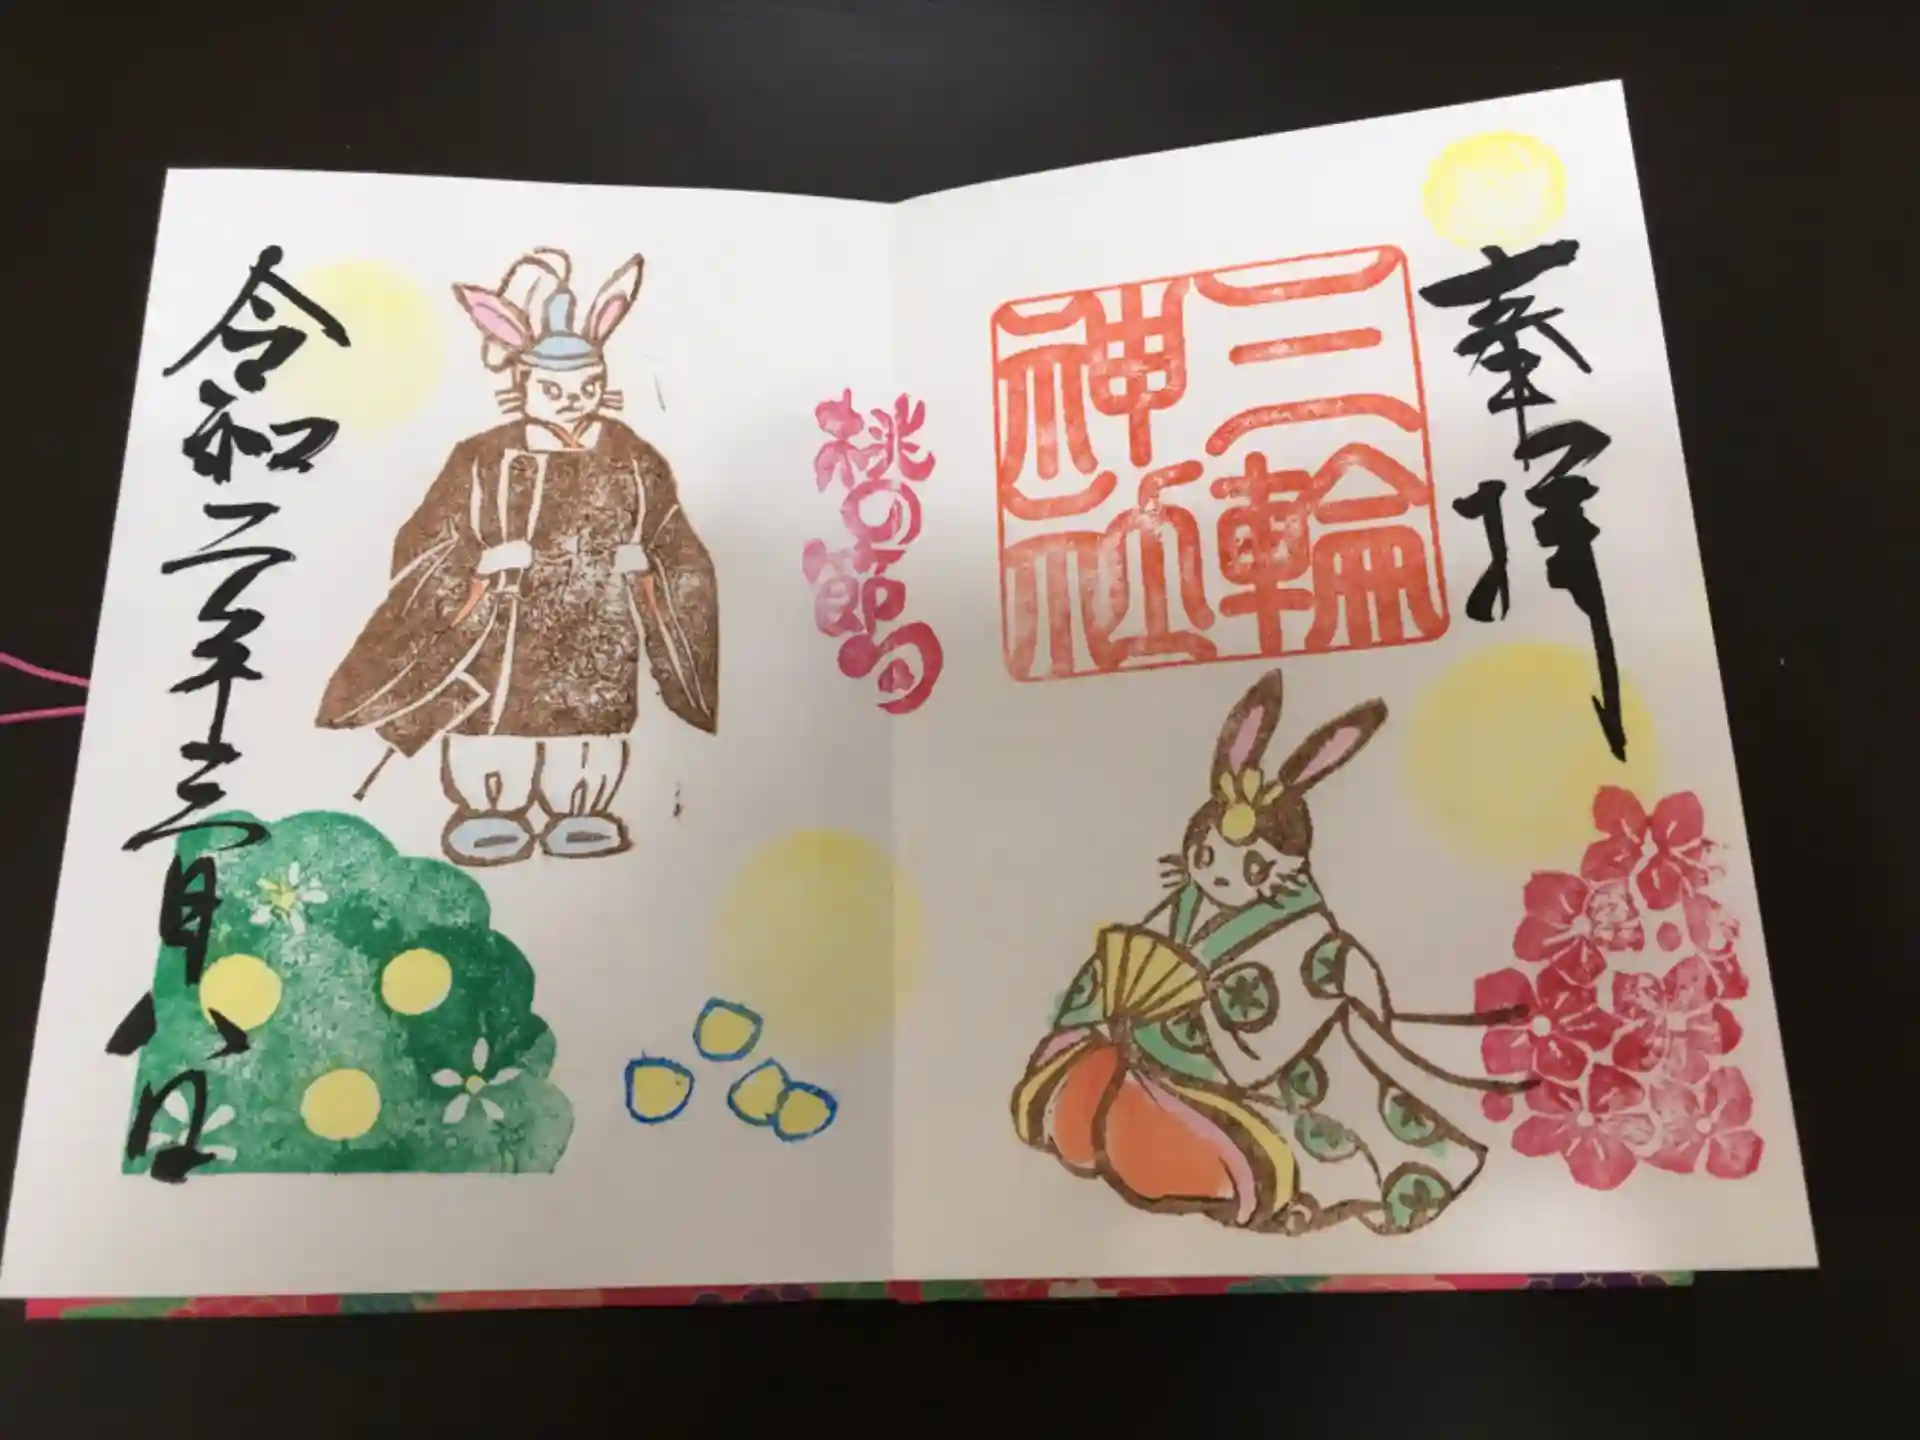 奉拝
三輪
神社
桃の節句
令和二年三月八日